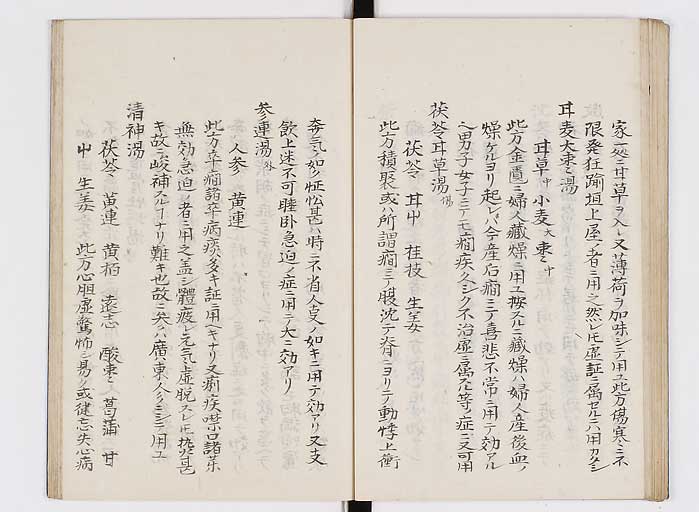 家一處ニ甘草ヲ入レ又薄荷ヲ加味シテ用ユ此方傷寒ニ不
限発狂踰垣上屋ノ者ニ用之然レ𪜈虚証ニ属セルニハ用カタシ
甘麦大棗湯
甘草中 小麦大 棗十
此方金匱ニ婦人蔵燥ニ用ユ按スルニ蔵燥ハ婦人産後血ノ
燥ケルヨリ起レハ今産后癇ニテ喜悲不常ニ用テ効アル
ヘ男子女子ニテモ癇疾久シク不治虚ニ属スル等ノ症ニ又可用
茯苓甘草湯傷
茯苓 甘中 桂枝 生姜
此方積聚或ハ所謂癇ニテ腹沈テ脊ニヨリテ動悸上衝
奔気ノ如ク怔忪甚ハ時ニ不省人叓ノ如キニ用テ効アリ又支
飲上迷不可睡卧急迫ノ症ニ用テ大ニ効アリ
参連湯外
人参 黄連
此方卒癇諸卒病痰多キ証ニ用ヘキナリ又痢疾噤口諸薬
無効急迫ノ者ニ用之盖シ體疲レ元気虚脱スレ𪜈甚
キ故ニ峻補スルヿナリ難キ也故ニ ハ廣東人参ニシテ用ユ
清神湯
茯苓 黄連 黄栢 遠志 酸棗 菖蒲 甘
中 生姜 此方心胆虚驚怖シ易ク或健忘失心病